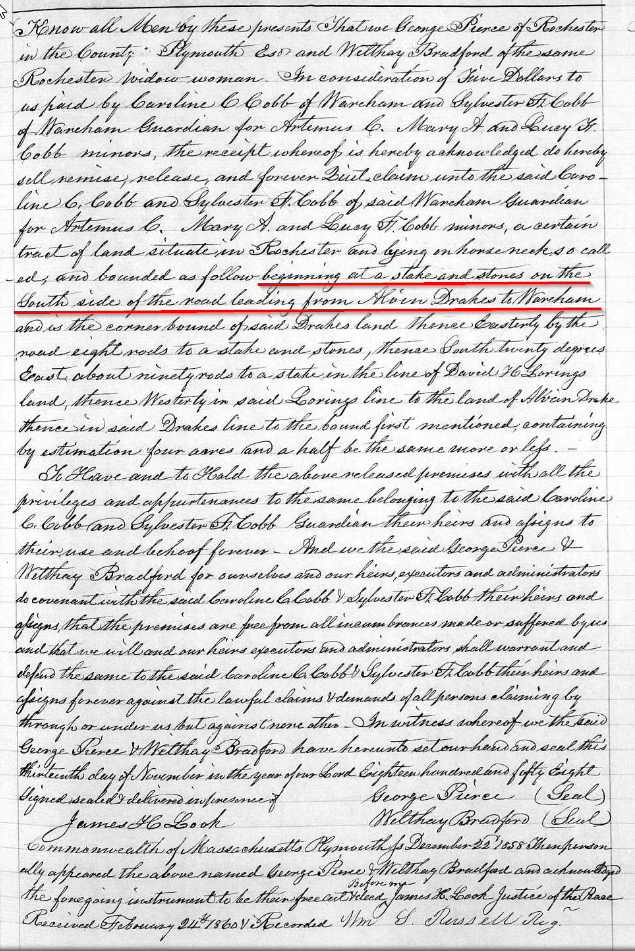 Know all Men by these presents That we George Pierce of Rochester
in the County Plymouth Esq and Welthay Bradford of the same
Rochester widow-woman. In consideration of Five Dollars to
us paid by Caroline C Cobb of Wareham and Sylvester F. Cobb
of Wareham Guardian for Artemus C. Mary A and Lucy F.
Cobb minors, the receipt whereof is hereby acknowledged do hereby
sell, remise, release, and forever Quit claim unto the said Caro-
line C. Cobb and Sylvester F. Cobb of said Wareham Guardian
for Artemus C. Mary A. and Lucy F. Cobb minors, a certain
tract of land situate in Rochester and lying on horse neck, so call
-ed, and bounded as follow beginning at a stake and stones on the
South side of the road leading from Alvin Drakes to Wareham
and is the corner bound of said Drakes land thence Easterly by the
road eight rods to a stake and stones, thence South twenty degrees
East about ninety rods to a stake in the line of David H. Lorings
land, thence Westerly in said Lorings line to the land of Alvan Drake
thence in said Drakes line to the bound first mentioned, containing
by estimation four acres and a half be the same more or less. —
To Have and to Hold the above released premises with all the
privileges and appurtenances to the same belonging to the said Caroline
C. Cobb and Sylvester F. Cobb Guardian their heirs and assigns to
their use and behoof forever - And we the said George Pierce &
Welthay Bradford for ourselves and our heirs, executors and administrators
do covenant with the said Caroline C. Cobb & Sylvester F. Cobb their heirs and
assigns, that the premises are free from all incumbrances made or suffered by us
and that we will and our heirs executors and administrators shall warrant and
defend the same to the said Caroline C. Cobb & Sylvester F. Cobb their heirs and
assigns forever against the lawful claims & demands of all persons claiming by
through or under us but against none other - In witness whereof we the said
George Pierce & Welthay Bradford have hereunto set our hand and seal this
thirteenth day of November in the year of our Lord Eighteen hundred and fifty Eight
Signed sealed & delivered in presence of George Pierce (Seal)
James H Look Welthay Bradford (Seal)
Commonwealth of Massachusetts Plymouth ss December 22d 1858 Then person
ally appeared the above named George Pierce & Welthay Bradford and acknowledged
the foregoing instrument to be their free act & deed Before me James H. Look Justice of the Peace
Received February 24th 1860 & Recorded Wm S. Russell Reg.